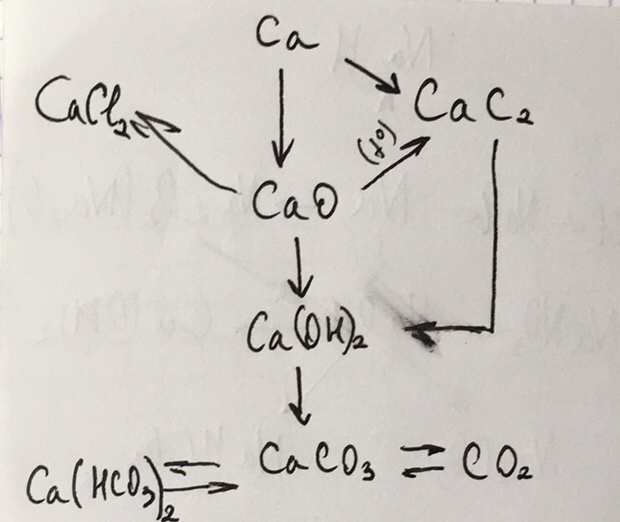 Ca
CaCl₂
CaC₂
(t°)
CaO
Ca(OH)₂
CaCO₃ ⇌ CO₂
Ca(HCO₃)₂